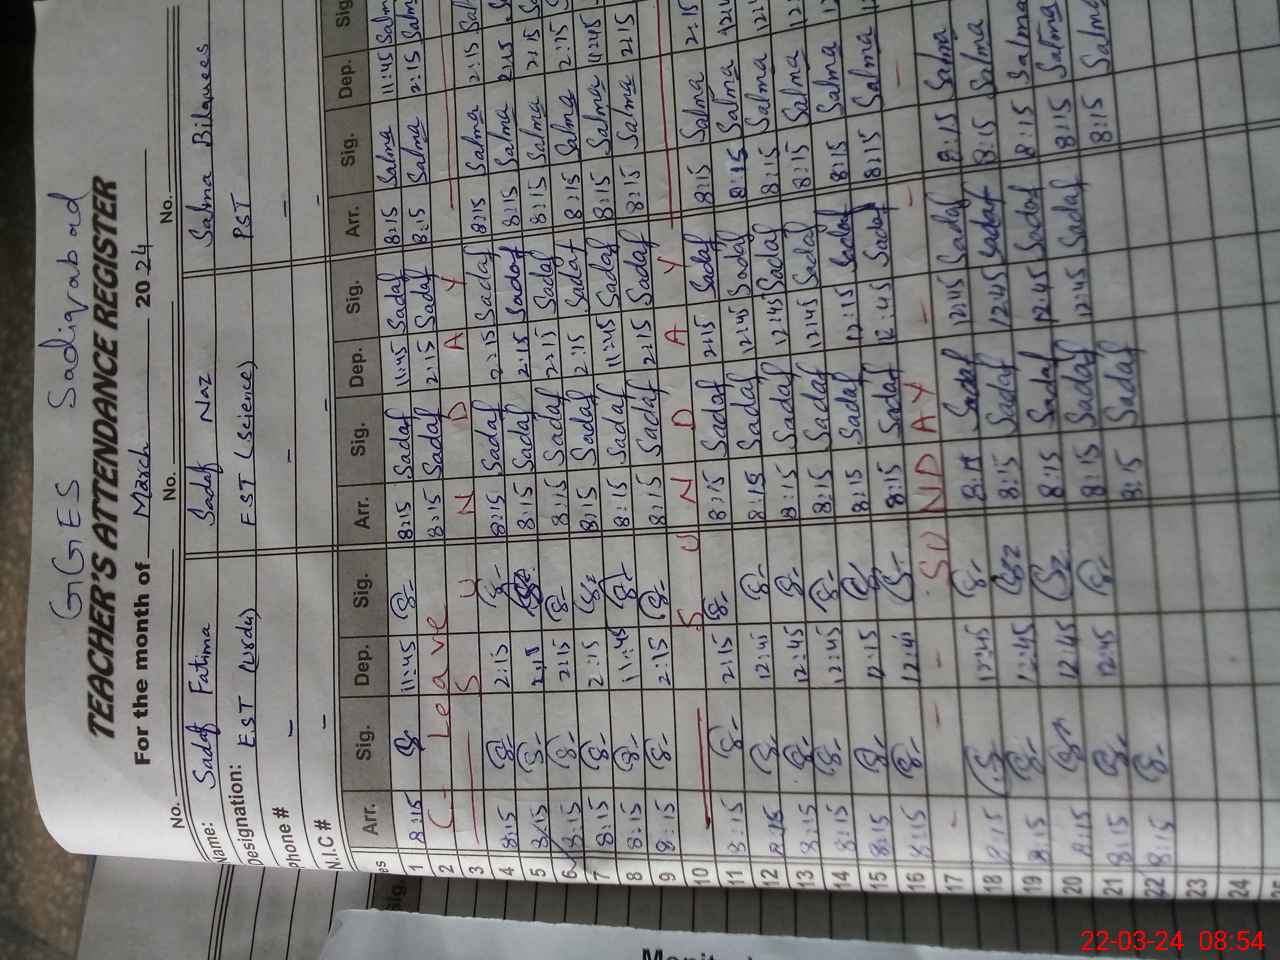 GGES Sadiqabad
TEACHER'S ATTENDANCE REGISTER
For the month of March 2024
No. No. No.
Name: Sadaf Fatima Sadaf Naz Salma Bilqees
Designation: EST (Urdu) EST (Science) PST
Phone # - - -
N.I.C # - - -
es Arr. Sig. Dep. Sig. Arr. Sig. Dep. Sig. Arr. Sig. Dep. Sig
1 8:15 11:45 8:15 Sadaf 11:45 Sadaf 8:15 Salma 11:45 Salm
2 C - Leave 8:15 Sadaf 2:15 Sadaf 8:15 Salma 2:15 Salm
3 S U N D A Y
4 8:15 2:15 8:15 Sadaf 2:15 Sadaf 8:15 Salma 2:15 Sal
5 8:15 2:15 8:15 Sadaf 2:15 Sadaf 8:15 Salma 2:15
6 8:15 2:15 8:15 Sadaf 2:15 Sadaf 8:15 Salma 2:15
7 8:15 2:15 8:15 Sadaf 2:15 Sadaf 8:15 Salma 2:15
8 8:15 11:45 8:15 Sadaf 11:45 Sadaf 8:15 Salma 11:45
9 8:15 2:15 8:15 Sadaf 2:15 Sadaf 8:15 Salma 2:15
10 S U N D A Y
11 8:15 2:15 8:15 Sadaf 2:15 Sadaf 8:15 Salma 2:15
12 8:15 12:45 8:15 Sadaf 12:45 Sadaf 8:15 Salma 12:4
13 8:15 12:45 8:15 Sadaf 12:45 Sadaf 8:15 Salma 12:
14 8:15 12:45 8:15 Sadaf 12:45 Sadaf 8:15 Salma 12
15 8:15 12:15 8:15 Sadaf 12:15 Sadaf 8:15 Salma
16 8:15 12:45 8:15 Sadaf 12:45 Sadaf 8:15 Salma
17 - - - SUNDAY - - -
18 8:15 12:45 8:15 Sadaf 12:45 Sadaf 8:15 Salma
19 8:15 12:45 8:15 Sadaf 12:45 Sadaf 8:15 Salma
20 8:15 12:45 8:15 Sadaf 12:45 Sadaf 8:15 Salma
21 8:15 12:45 8:15 Sadaf 12:45 Sadaf 8:15 Salma
22 8:15 8:15 Sadaf 8:15 Salma
23
24
Sig.
22-03-24 08:54